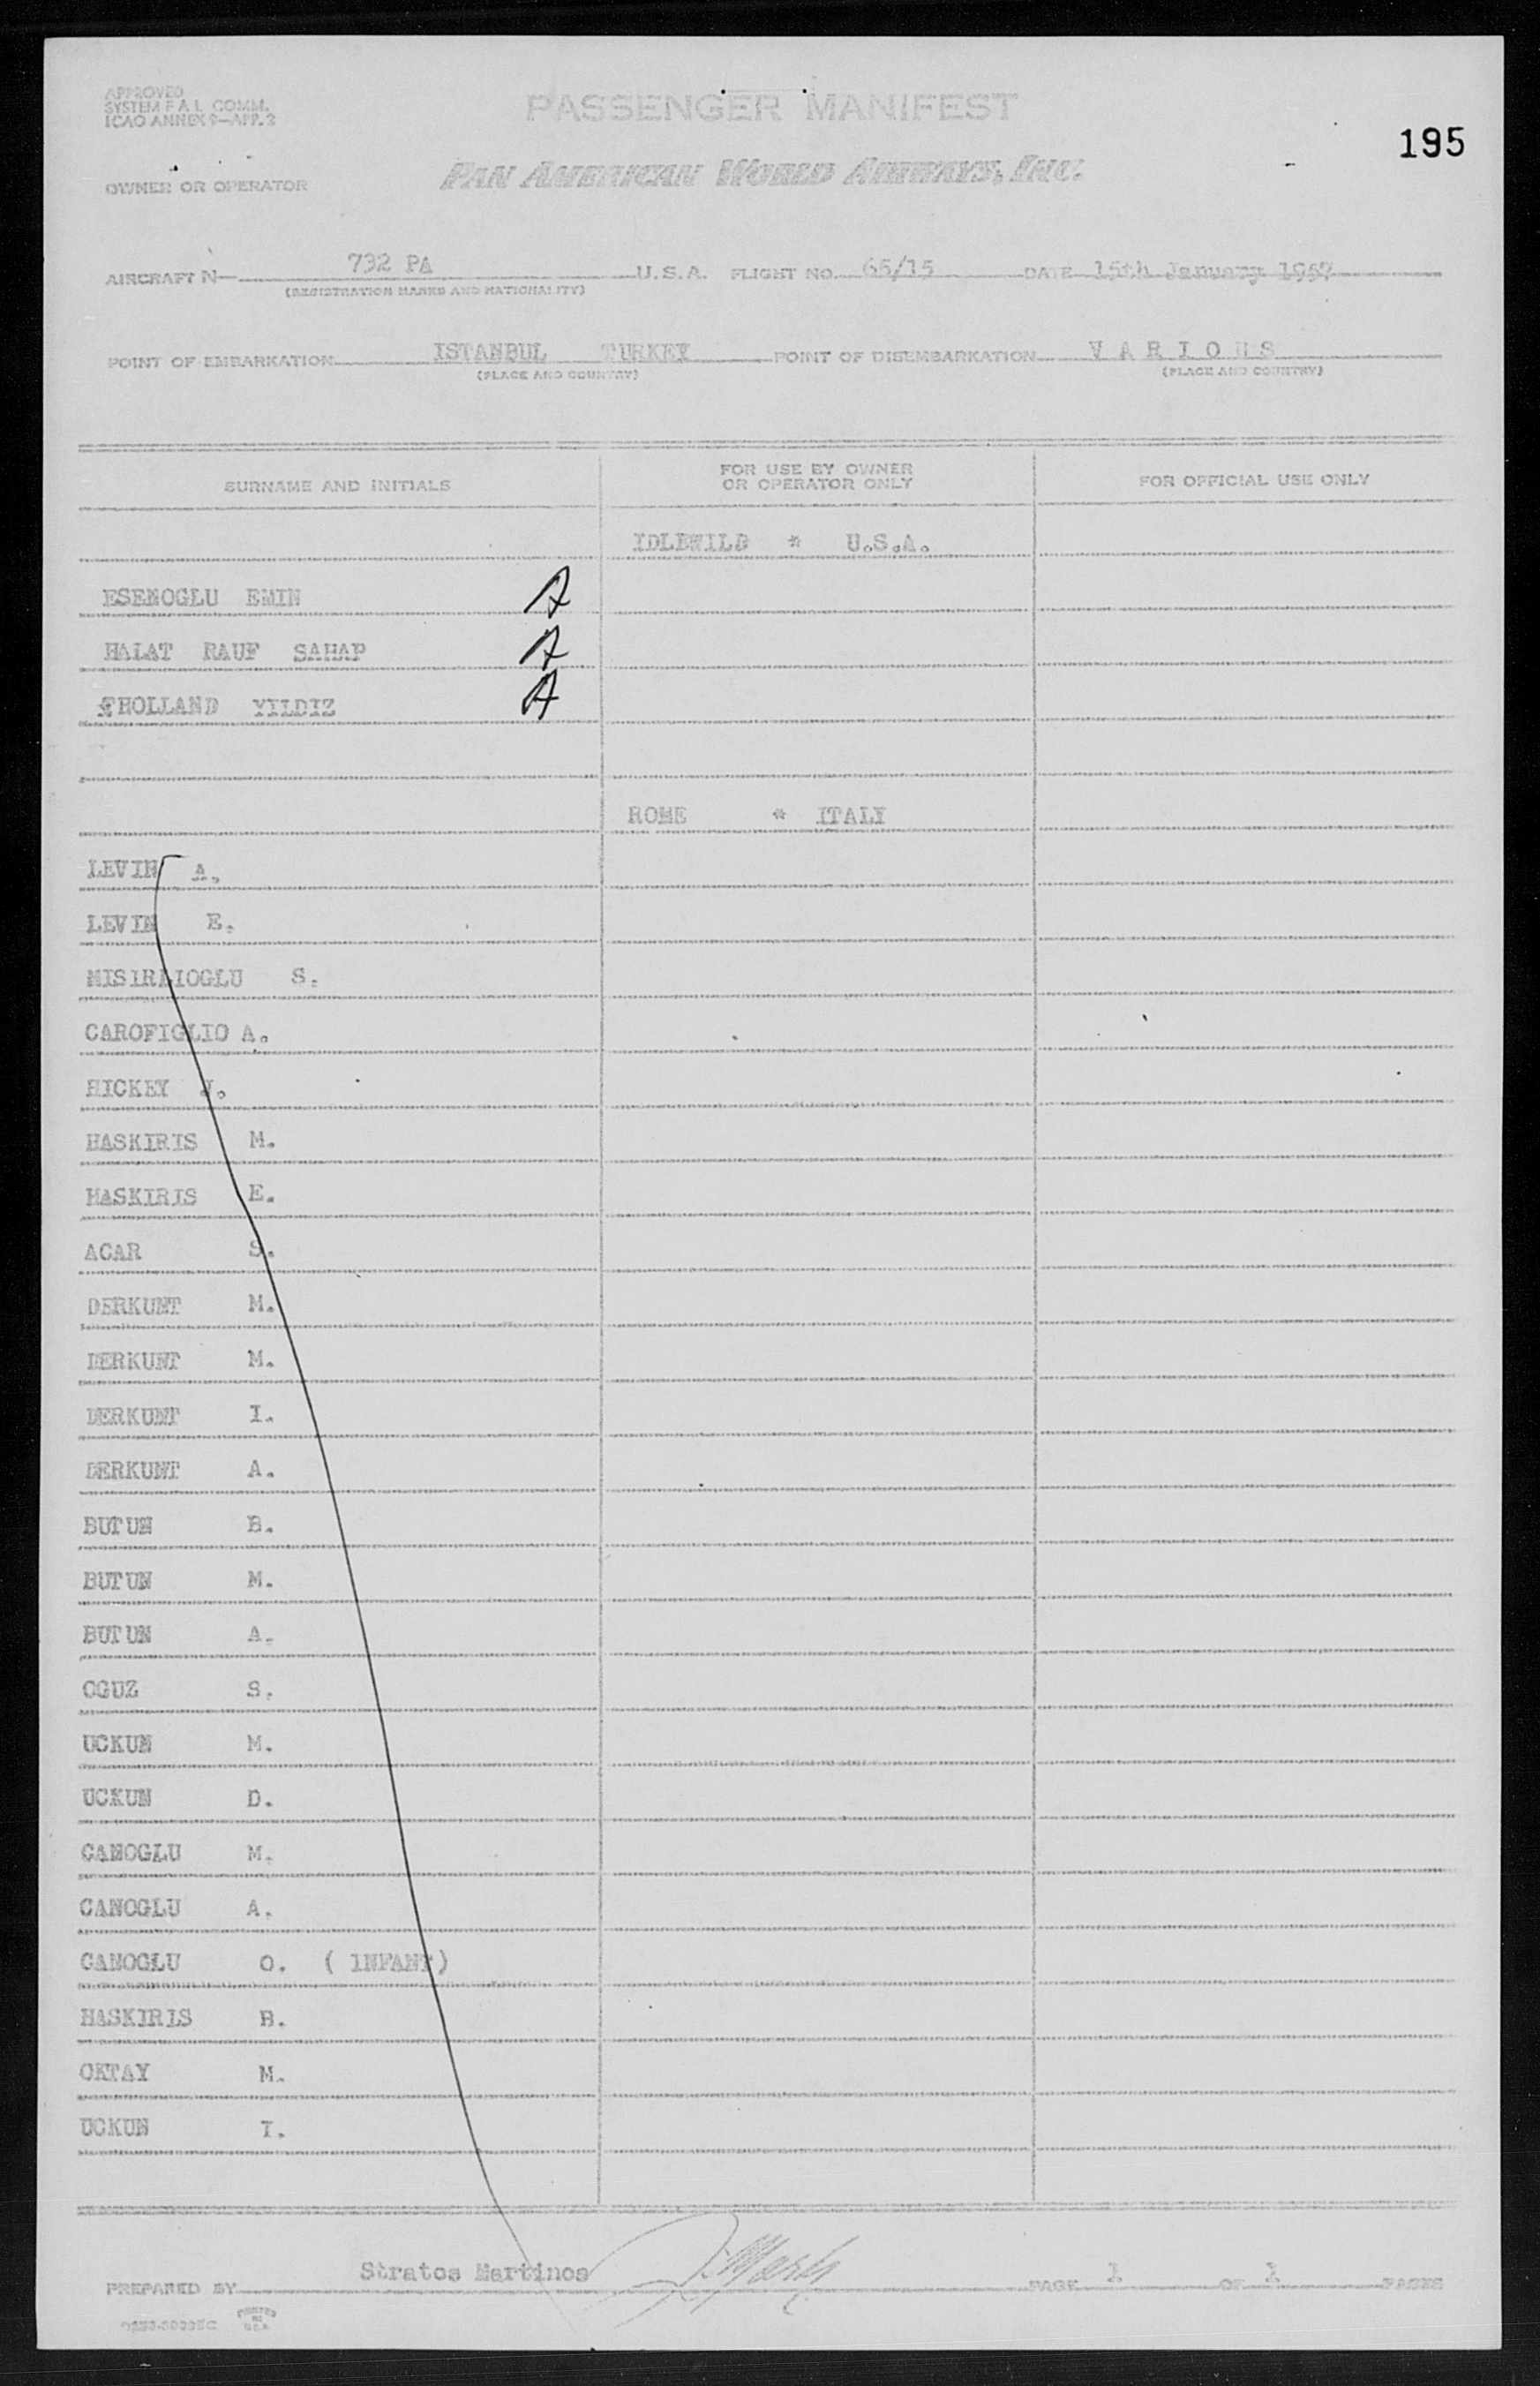 APPROVED
SYSTEM F A L COMM.
ICAO ANNEX 9—APP. 2
PASSENGER MANIFEST
195
OWNER OR OPERATOR
PAN AMERICAN WORLD AIRWAYS, INC.
AIRCRAFT N— 732 PA U.S.A. FLIGHT NO. 65/15 DATE 15th January 1957
(REGISTRATION MARKS AND NATIONALITY)
POINT OF EMBARKATION ISTANBUL TURKEY POINT OF DISEMBARKATION V A R I O U S
(PLACE AND COUNTRY) (PLACE AND COUNTRY)
SURNAME AND INITIALS FOR USE BY OWNER OR OPERATOR ONLY FOR OFFICIAL USE ONLY
IDLEWILD * U.S.A.
ESENOGLU EMIN A
HALAT RAUF SAHAP A
HOLLAND YILDIZ A
ROME * ITALY
LEVIN A.
LEVIN E.
MISIRLIOGLU S.
CAROFIGLIO A.
HICKEY J.
HASKIRIS M.
HASKIRIS E.
ACAR S.
DERKUNT M.
DERKUNT M.
DERKUNT I.
DERKUNT A.
BUTUN B.
BUTUN M.
BUTUN A.
OGUZ S.
UCKUN M.
UCKUN D.
CANOGLU M.
CANOGLU A.
CANOGLU O. ( INFANT)
HASKIRIS B.
OKTAY M.
UCKUN I.
PREPARED BY Stratos Martinos PAGE 1 OF 1 PAGES
PRINTED
IN
U.S.A.